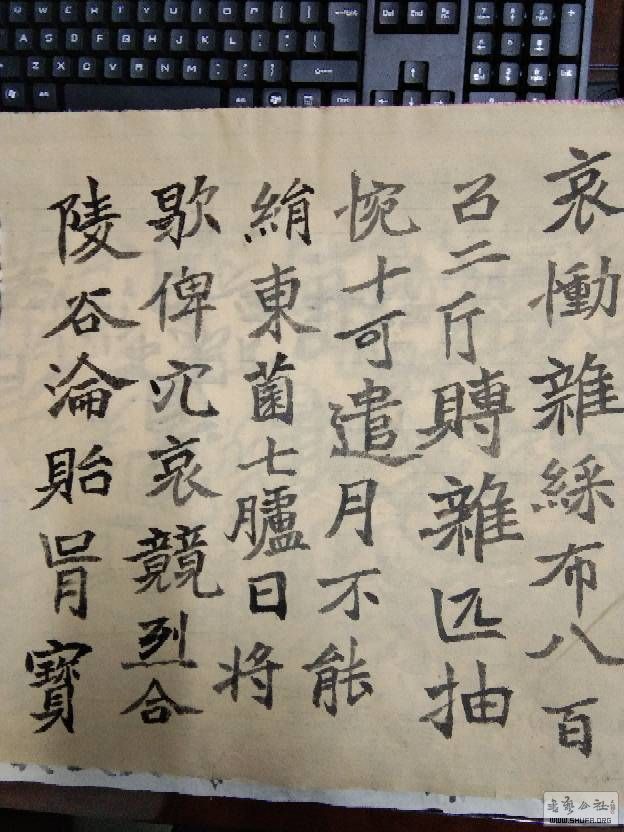 哀慟雜綵布八百
召二斤賻雜匹抽
惋十可遣月不能
絹東菌七臚日将
歌俾穴哀競烈合
陵谷淪貽胃寶
WWW.SHUFA.ORG